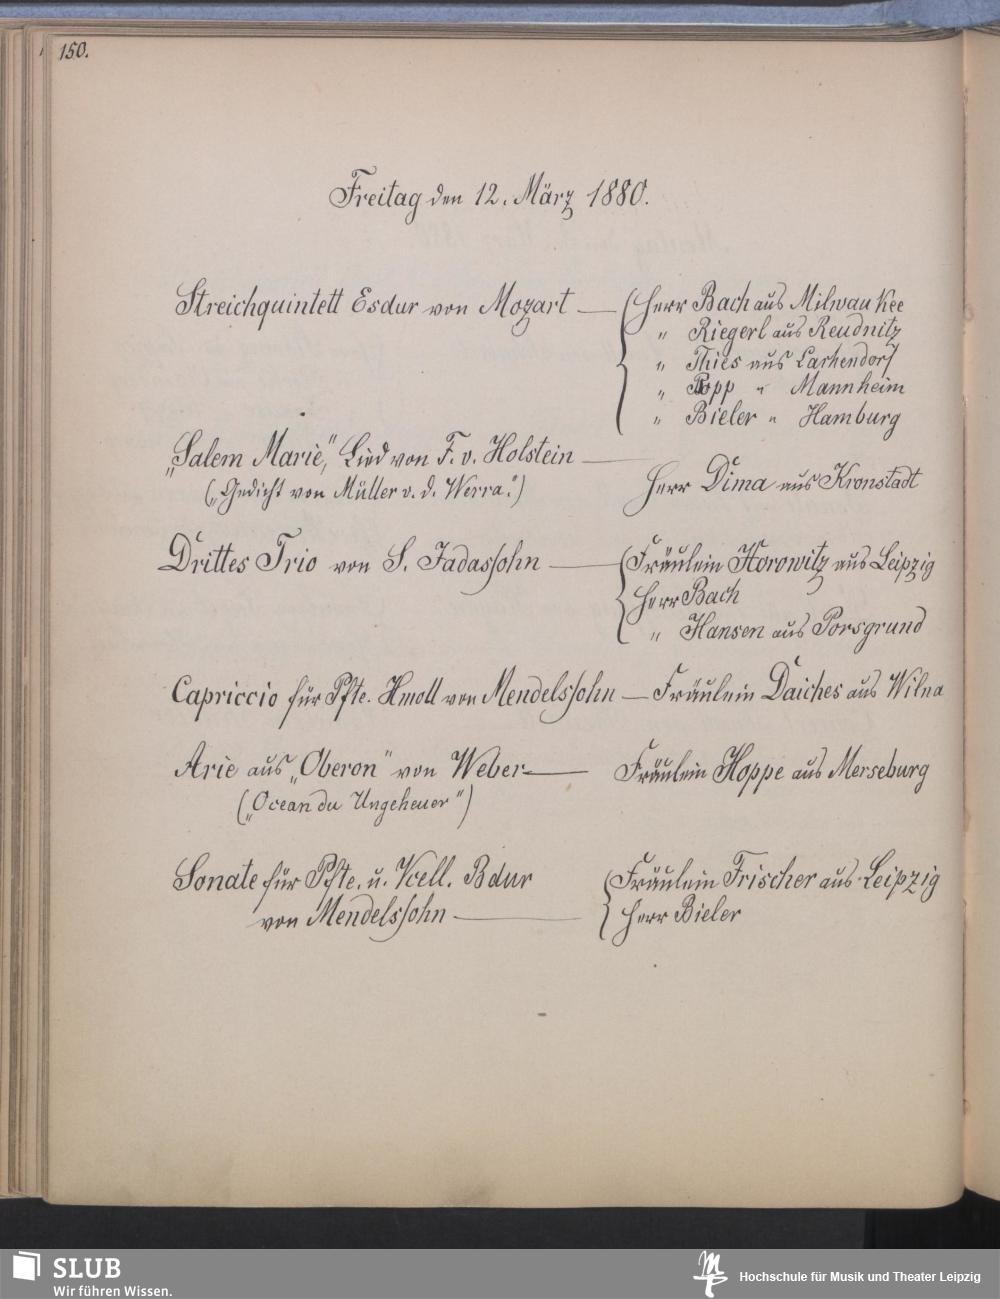 150.
Freitag den 12. März 1880.
Streichquintett Esdur von Mozart — Herr Bach aus Milwaukee
„ Riegerl aus Reudnitz
„ Thies aus Larhendorf
„ Popp „ Mannheim
„ Bieler „ Hamburg
„Salem Marie," Lied von F. v. Holstein — Herr Dima aus Kronstadt
(„Gedicht von Müller v. d. Werra.")
Drittes Trio von S. Jadassohn — Fräulein Horowitz aus Leipzig
Herr Bach
„ Hansen aus Porsgrund
Capriccio für Pfte. Hmoll von Mendelssohn — Fräulein Daiches aus Wilna
Arie aus „Oberon" von Weber — Fräulein Hoppe aus Merseburg
(„Ocean du Ungeheuer")
Sonate für Pfte. u. Vcell. Bdur
von Mendelssohn — Fräulein Frischer aus Leipzig
Herr Bieler
SLUB
Wir führen Wissen.
Hochschule für Musik und Theater Leipzig